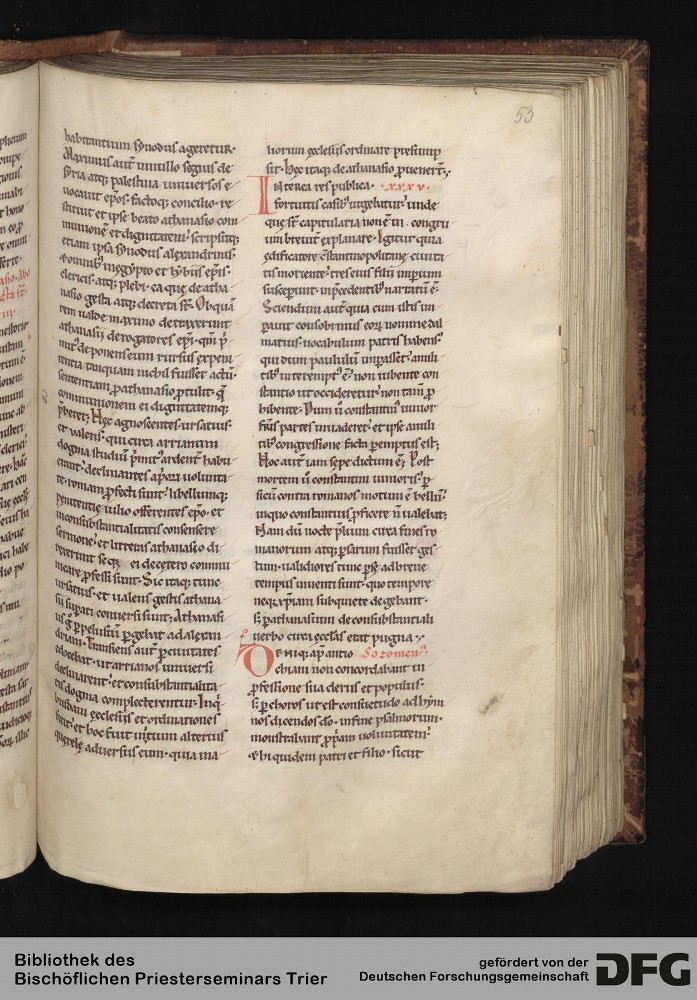 53
habitantium synodus ageretur.
Maximus aut nichillo segnis de
syria atq; palestina universos e
vocavit epos. factoq; concilio. re
stituit et ipse beato athanasio com
munione et dignitate. scripsitq;
etiam ipsa synodus alexandrinis.
& omnib; in egypto et lybiis epis.
clericis. atq; plebi. ea que de atha
nasio gesta atq; decreta st. Ob quam
rem valde maximo detraxerunt
athanasii derogatores
rentia tanquam nichil fuisset actu.
sententiam p athanasio protulit. q
communionem ei dignitatemq;
pberet. Hec agnoscentes ursatius
et valens. qui circa arrianum
dogma studium
erant. declinantes
te. romam pfecti sunt. libellumq;
penitentie iulio offerentes epo. et
inconsubstantialitatis consensere
sermone. et litteras athanasio di
rexerunt seq; ei decetero commu
nicare pfessi sunt. Sic itaq; tunc
ursatius. et valens gestis athana
sii supati conversi sunt. Athanasi
us g pelusium pgebat ad alexan
driam. Transiens aut p civitates
edocebat. ut arrianos universi
declinarent. et consubstantialita
tis dogma complecterentur. Inq
busdam ecclesiis et ordinationes
fecit. et hoc fuit initium alterius
querele adversus eum. quia ina
liorum ecclesiis ordinare presump
sit. Hec itaq; de athanasio pvenert.
Interea res publica . xxxv .
fortuitis casib; urgebatur. unde
que st capitularia non e in congru
um breviter explanare. Igitur quia
edificatore constantinopolitane civita
tis moriente. tres eius filii imperium
susceperunt. in pcedentib; narratum e.
Sciendum aut quia cum istis im
paverit consobrinus eor nomine dal
matius. vocabulum patris habens.
qui dum paululum impasset. a mili
tib; interempt; e. non iubente con
stantio ut occideretur. non tam p
hibente. Dum v constantinus iunior
fris partes invaderet. et ipse a mili
tib; congressione facta peremptus est;
Hoc aut iam sepe dictum e. Post
mortem v constantini iunioris. p
sicum contra romanos motum e bellu.
in quo constantius pficere n valebat;
Nam dum nocte plium circa fines ro
manorum atq; psarum fuisset ges
tum. validiores tunc pse ad breve
tempus inventi sunt. quo tempore
neq; xpiani sub quiete degebant.
s; p athanasium de consubstantiali
verbo circa ecclas erat pugna.
Deniq; ap antio Sozomen;
chiam non concordabant in
pfessione sua clerus et populus.
s; p choros ut est consuetudo ad hym
nos dicendos do. in fine psalmorum.
monstrabant ppriam voluntatem.
& hi quidem patri et filio. sicut
Bibliothek des
Bischöflichen Priesterseminars Trier
gefördert von der
Deutschen Forschungsgemeinschaft
DFG